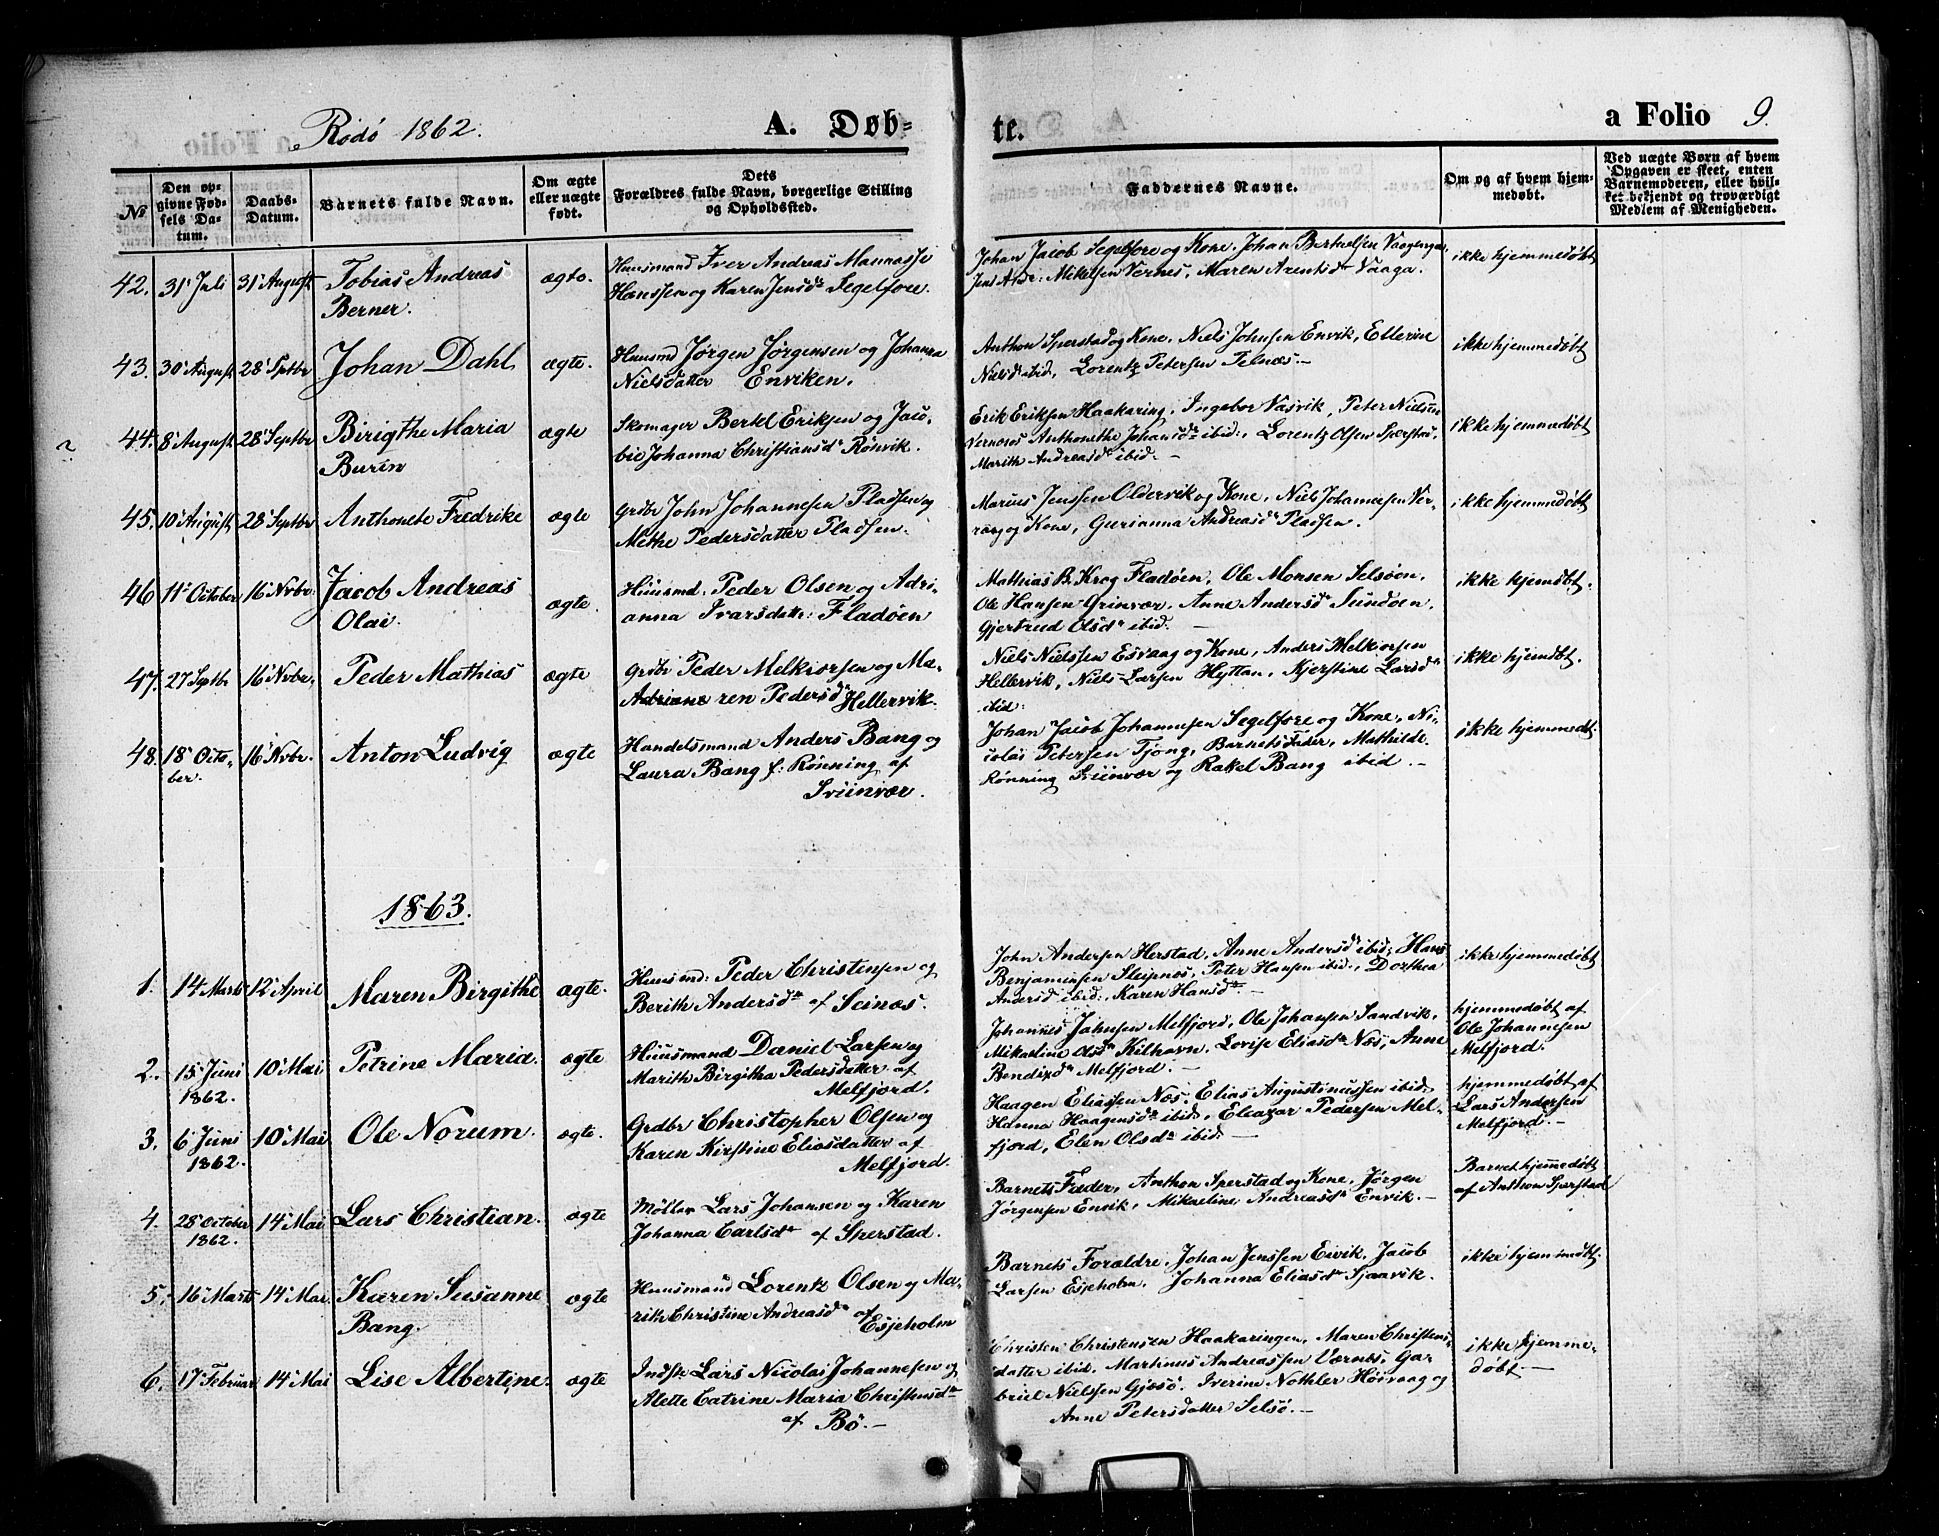 Rödö 1862.
A. Døb-
te.
a Folio 9.
No
Den op-
givne Fød-
sels Da-
tum.
Daabs-
Datum.
Barnets fulde Navn.
Om ægte
eller uægte
født.
Dets
Forældres fulde Navn, borgerlige Stilling
og Opholdssted.
Faddernes Navne.
Om og af hvem hjem-
medøbt.
Ved uægte Børn af hvem
Opgaven er skeet, enten
Barnemoderen, eller hvil-
ket bekjendt og troværdigt
Medlem af Menigheden.
42. 31 Juli 31 August
Tobias Andreas
Berner.
ægte.
Huusmand Iver Andreas Mannasse
Hanssen og Karen Jensd. Segelfore.
Johan Jacob Segelfore og Kone, Johan Berthelsen Vaagengen
Jens Andr: Mikelsen Vernes, Maren Arentsd. Vaaga.
ikke hjemmedøbt
43. 30 August 28 Septbr
Johan Dahl
ægte.
Huusmd Jørgen Jørgensen og Johanna
Nielsdatter Enviken.
Anthon Sperstad og Kone, Niels Johnsen Envik, Ellerine
Nielsd. ibid, Lorentz Petersen Telnæs.—
ikke hjemmedøbt
44. 8 August 28 Septbr
Birigthe Maria
Burin
ægte
Skomager Bertel Eriksen og Jaco-
bie Johanna Christiansd. Rönvik.
Erik Eriksen Haakaring, Ingebor Vasvik, Peter Nielsen
Verneros Anthonethe Johansd. ibid:, Lorentz Olsen Sperstad,
Marith Andreasd. ibid.—
ikke hjemmedøbt
45. 10 August 28 Septbr
Anthonete Fredrike
ægte
Grdbr John Johannesen Pladsen og
Methe Pedersdatter Pladsen.
Marius Jenssen Oldervik og Kone, Niels Johannesen Ver-
nes og Kone, Gurianna Andreasd. Pladsen.
ikke hjemmedøbt
46 11 October 16 Nvbr.
Jacob Andreas
Olai.
ægte.
Huusmd. Peder Olsen og Adri-
anna Ivarsdatt: Fladöen
Mathias B. Krog Fladöen, Ole Monsen Selsöen,
Ole Hansen Grinvær, Anne Andersd. Sundöen,
Gjertrud Olsd. ibid.—
ikke hjemdøbt.
47. 27 Septbr 16 Nvbr.
Peder Mathias
ægte
Grdbr Peder Melkiorsen og Ma-
Adriane ren Pedersd. Hellervik.
Niels Nielssen Esvaag og Kone, Anders Melkiorsen
Hellervik, Niels Larsen Hyttan, Kjerstine Larsd.
ibid:
ikke hjemdøbt.
48. 18 Octo-
ber.
16 Nvbr.
Anton Ludvig
ægte
Handelsmand Anders Bang og
Laura Bang f: Rönning af
Sviinvær.
Johan Jacob Johannesen Segelfore og Kone, Ni-
colai Petersen Tjong, Barnets Fader, Mathilde
Rönning Sviinvær og Rakel Bang ibid.—
ikke hjemmedt.
1863.
1. 14 Marts 12 April
Maren Birgithe
ægte.
Huusmd: Peder Christensen og
Berith Andersd. af Seinæs.
John Andersen Herstad, Anne Andersd. ibid:, Hans
Benjaminsen Sleipnes, Peter Hansen ibid:, Dorthea
Andersd ibid:, Karen Hansd.—
ikke hjemmedøbt
2. 15 Juni
1862.
10 Mai
Petrine Maria.
ægte
Huusmand Daniel Larsen og
Marith Birgitha Pedersdatter af
Melfjord.
Johannes Johnsen Melfjord, Ole Johansen Sandvik,
Mikaeline Olsd. Kilhavn, Lovise Eliasd. Næs, Anne
Bendixd. Melfjord.—
hjemmedøbt af
Ole Johannesen
Melfjord.
3. 6 Juni
1862.
10 Mai
Ole Norum.
ægte.
Grdbr Christopher Olsen og
Karen Kirstine Eliasdatter af
Melfjord.
Haagen Eliassen Næs, Elias Augustinussen ibid,
Hanna Haagensd. ibid., Eleazar Pedersen Mel-
fjord, Elen Olsd. ibid.—
hjemmedøbt af
Lars Andersen
Melfjord.—
4. 28 October
1862.
14 Mai
Lars Christian.
ægte
Möller Lars Johansen og Karen
Johanna Carlsd. af Sperstad.
Barnets Fader, Anthon Sperstad og Kone, Jørgen
Jørgensen Envik, Mikaeline, Andreasd. Envik.—
Barnet hjemmedøbt
af Anthon Sperstad
5. 16 Marts 14 Mai.
Karen Susanne
Bang.
ægte
Huusmand Lorentz Olsen og Ma-
rith Christine Andreasd. af
Esjeholm
Barnets Foraldre, Johan Jenssen Envik, Jacob
Larsen Esjeholm, Johanna Eliasd. Sjaavik.
ikke hjemmedøbt.
6. 17 Februar 14 Mai
Lise Albertine.
ægte
Indst. Lars Nicolai Johannesen og
Mette Catrine Maria Christensd.
af Bö.—
Christen Christensen Haakaringen, Maren Christens-
datter ibid, Martinus Andreassen Værnes, Ga-
briel Nielssen Gjesö, Iverine Nothler Høivaag og
Anne Petersdatter Selsö.—
ikke hjemme-
døbt.—